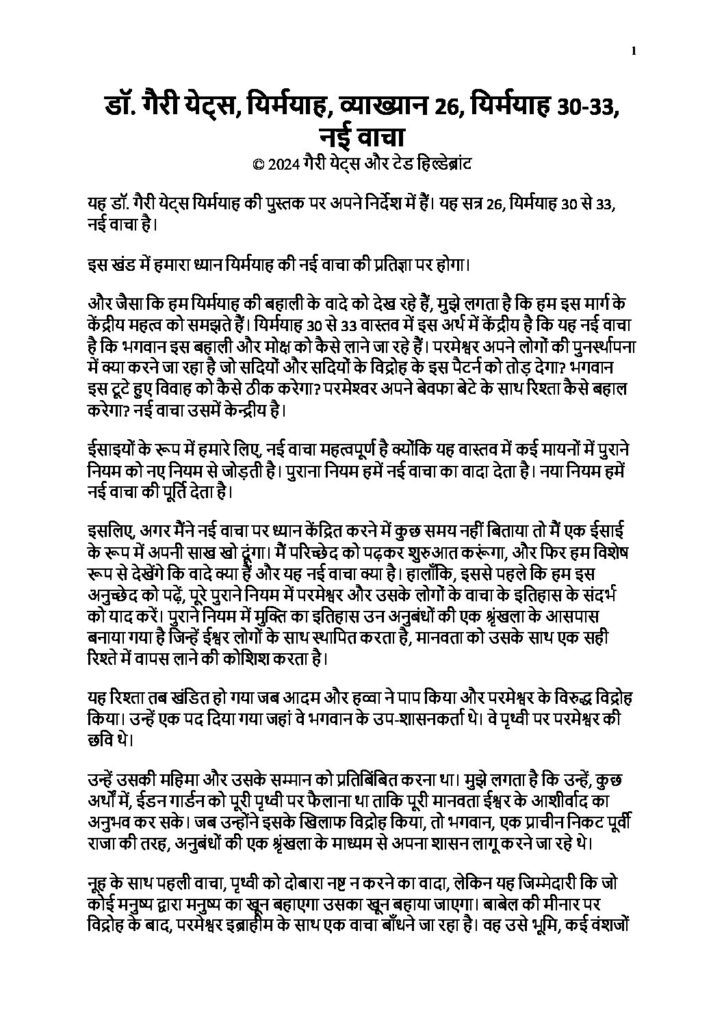 1
डॉ. गैरी येट्स, यिर्मयाह, व्याख्यान 26, यिर्मयाह 30-33,
नई वाचा
© 2024 गैरी येट्स और टेड हिल्डेब्रांट
यह डॉ. गैरी येट्स यिर्मयाह की पुस्तक पर अपने निर्देश में हैं। यह सत्र 26, यिर्मयाह 30 से 33,
नई वाचा है।
इस खंड में हमारा ध्यान यिर्मयाह की नई वाचा की प्रतिज्ञा पर होगा।
और जैसा कि हम यिर्मयाह की बहाली के वादे को देख रहे हैं, मुझे लगता है कि हम इस मार्ग के
केंद्रीय महत्व को समझते हैं। यिर्मयाह 30 से 33 वास्तव में इस अर्थ में केंद्रीय है कि यह नई वाचा
है कि भगवान इस बहाली और मोक्ष को कैसे लाने जा रहे हैं। परमेश्वर अपने लोगों की पुनर्स्थापना
में क्या करने जा रहा है जो सदियों और सदियों के विद्रोह के इस पैटर्न को तोड़ देगा? भगवान
इस टूटे हुए विवाह को कैसे ठीक करेगा? परमेश्वर अपने बेवफा बेटे के साथ रिश्ता कैसे बहाल
करेगा? नई वाचा उसमें केन्द्रीय है।
ईसाइयों के रूप में हमारे लिए, नई वाचा महत्वपूर्ण है क्योंकि यह वास्तव में कई मायनों में पुराने
नियम को नए नियम से जोड़ती है। पुराना नियम हमें नई वाचा का वादा देता है। नया नियम हमें
नई वाचा की पूर्ति देता है।
इसलिए, अगर मैंने नई वाचा पर ध्यान केंद्रित करने में कुछ समय नहीं बिताया तो मैं एक ईसाई
के रूप में अपनी साख खो दूंगा। मैं परिच्छेद को पढ़कर शुरुआत करूंगा, और फिर हम विशेष
रूप से देखेंगे कि वादे क्या हैं और यह नई वाचा क्या है। हालाँकि, इससे पहले कि हम इस
अनुच्छेद को पढ़ें, पूरे पुराने नियम में परमेश्वर और उसके लोगों के वाचा के इतिहास के संदर्भ
को याद करें। पुराने नियम में मुक्ति का इतिहास उन अनुबंधों की एक श्रृंखला के आसपास
बनाया गया है जिन्हें ईश्वर लोगों के साथ स्थापित करता है, मानवता को उसके साथ एक सही
रिश्ते में वापस लाने की कोशिश करता है।
यह रिश्ता तब खंडित हो गया जब आदम और हव्वा ने पाप किया और परमेश्वर के विरुद्ध विद्रोह
किया। उन्हें एक पद दिया गया जहां वे भगवान के उप-शासनकर्ता थे। वे पृथ्वी पर परमेश्वर की
छवि थे।
उन्हें उसकी महिमा और उसके सम्मान को प्रतिबिंबित करना था। मुझे लगता है कि उन्हें, कुछ
अर्थों में, ईडन गार्डन को पूरी पृथ्वी पर फैलाना था ताकि पूरी मानवता ईश्वर के आशीर्वाद का
अनुभव कर सके। जब उन्होंने इसके खिलाफ विद्रोह किया, तो भगवान, एक प्राचीन निकट पूर्वी
राजा की तरह, अनुबंधों की एक श्रृंखला के माध्यम से अपना शासन लागू करने जा रहे थे।
नूह के साथ पहली वाचा, पृथ्वी को दोबारा नष्ट न करने का वादा, लेकिन यह जिम्मेदारी कि जो
कोई मनुष्य द्वारा मनुष्य का खून बहाएगा उसका खून बहाया जाएगा। बाबेल की मीनार पर
विद्रोह के बाद, परमेश्वर इब्राहीम के साथ एक वाचा बाँधने जा रहा है। वह उसे भूमि, कई वंशजों